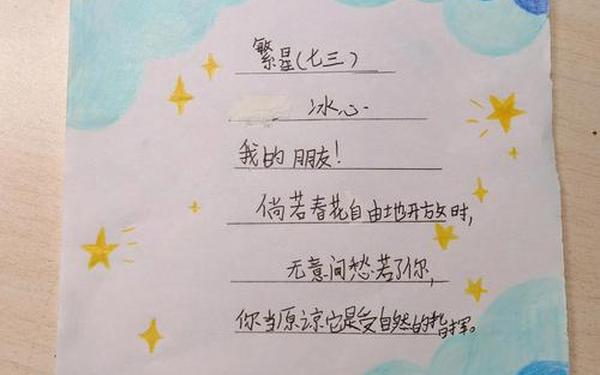 繁星(七三)
冰心
我的朋友!
倘若春花自由地开放时,
无意间愁若了你,
你当原谅它是受自然的指挥。